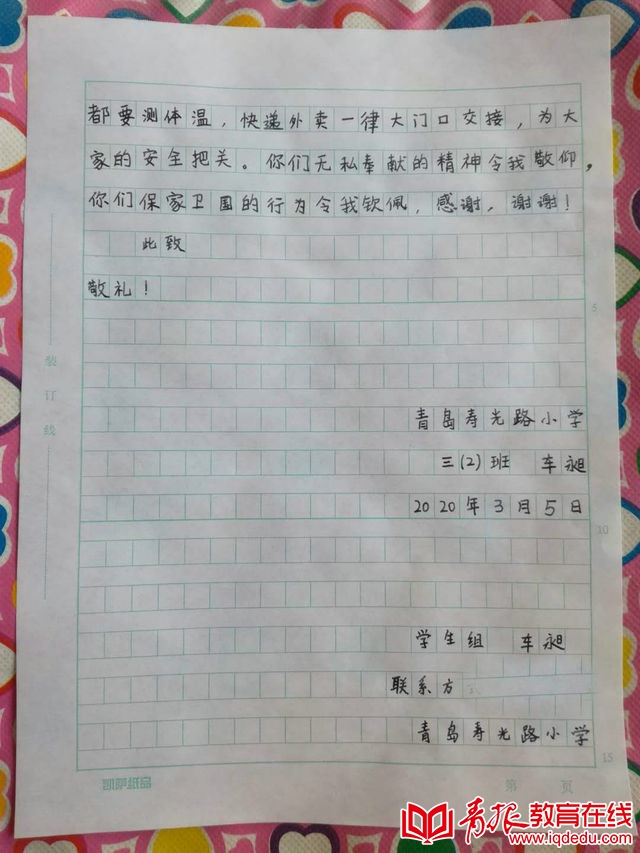 都要测体温，快递外卖一律大门口交接，为大
家的安全把关。你们无私奉献的精神令我敬仰，
你们保家卫国的行为令我钦佩，感谢，谢谢！
此致
敬礼！
5
装订线
青岛寿光路小学
三(2)班 车昶
2020年3月5日
10
学生组 车昶
联系方
青岛寿光路小学
15
第 页
青报教育在线
www.iqdedu.com